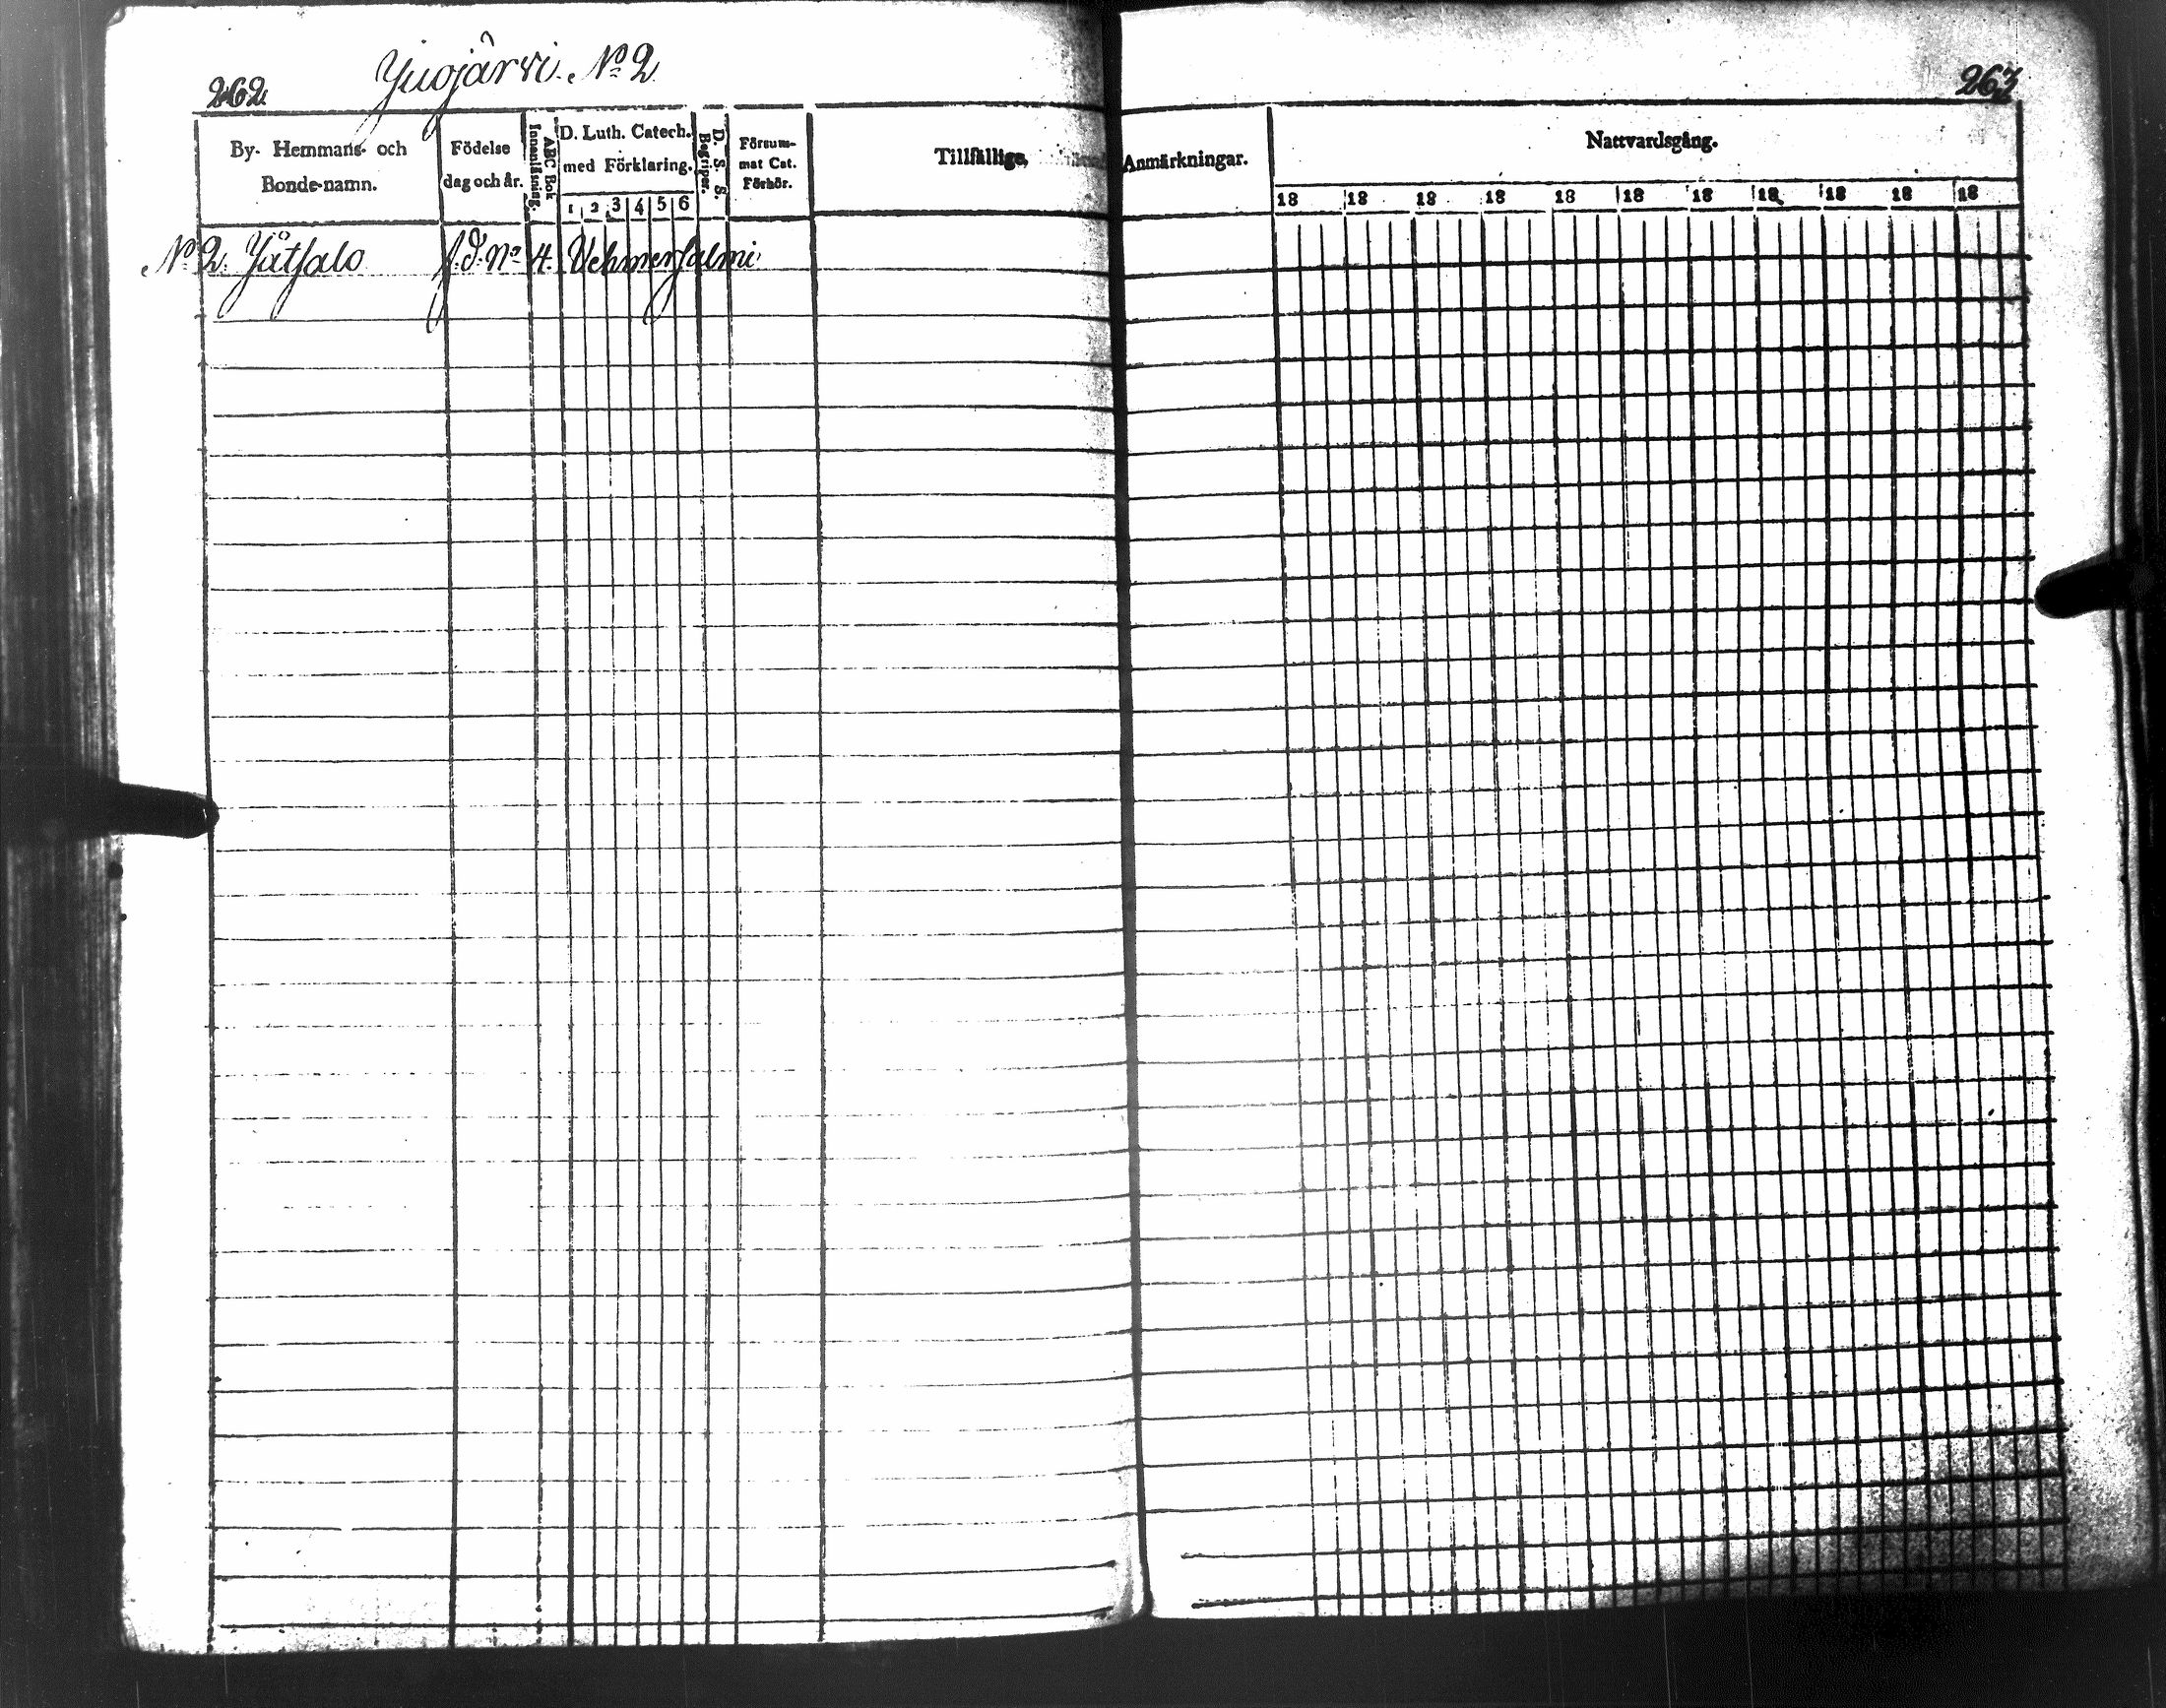 262
Juojärvi. No 2
263
By- Hemmans- och Bonde-namn.
Födelse dag och år.
ABC Bok Innanläsning.
D. Luth. Catech. med Förklaring.
1 2 3 4 5 6
D. S. S. Begriper.
Försum- mat Cat. Förhör.
Tillfällige, Anmärkningar.
Nattvardsgång.
18 18 18 18 18 18 18 18 18 18 18
No 2. No 4. Vehmersalmi